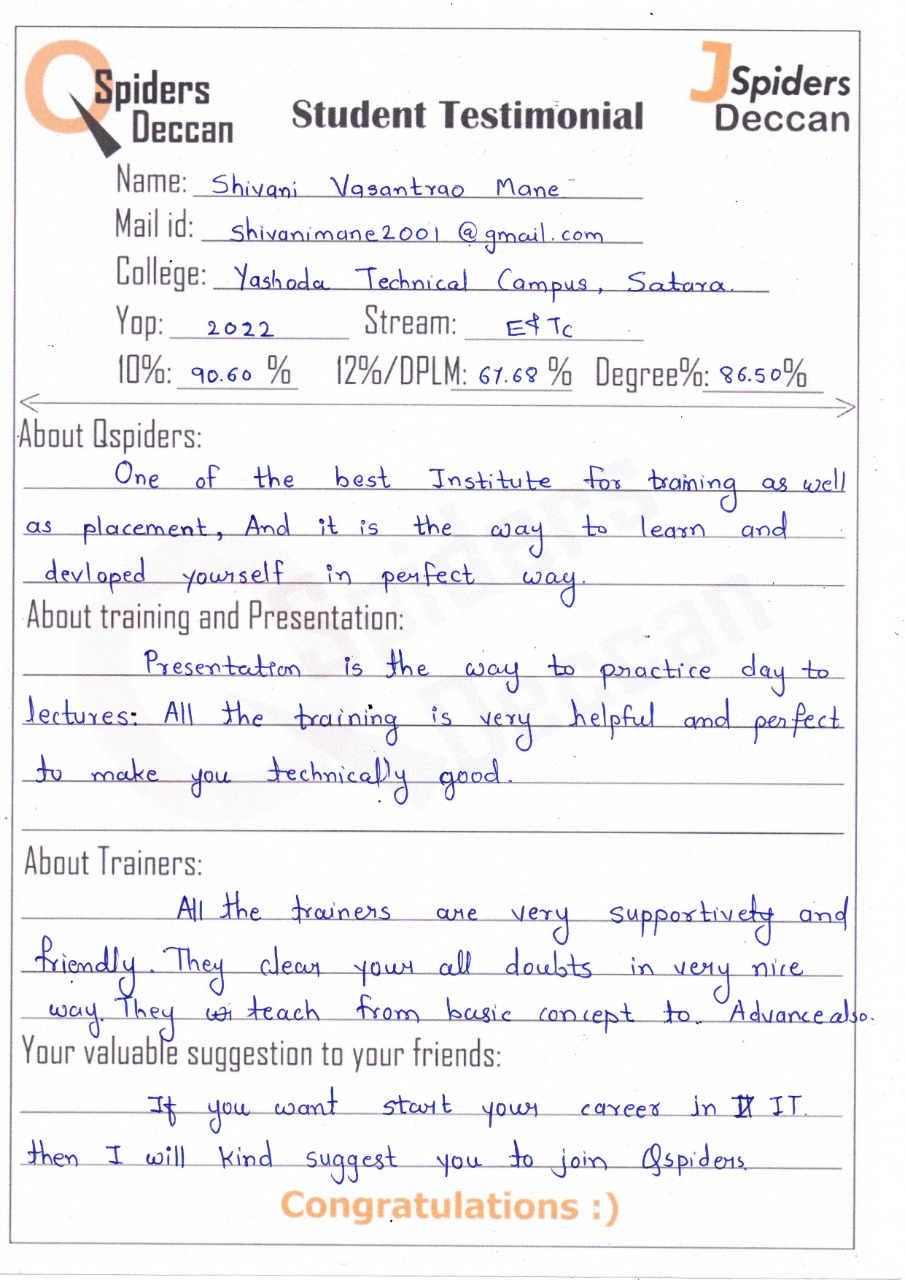 QSpiders
Deccan
Student Testimonial
JSpiders
Deccan
Name: Shivani Vasantrao Mane
Mail id: shivanimane2001@gmail.com
College: Yashoda Technical Campus, Satara.
Yop: 2022 Stream: E&TC
10%: 90.60 % 12%/DPLM: 67.68 % Degree%: 86.50%
About Qspiders:
One of the best Institute for training as well
as placement, And it is the way to learn and
devloped yourself in perfect way.
About training and Presentation:
Presentation is the way to practice day to
lectures. All the training is very helpful and perfect
to make you technically good.
About Trainers:
All the trainers are very supportively and
friendly. They clear your all doubts in very nice
way. They teach from basic concept to Advance also.
Your valuable suggestion to your friends:
If you want start your career in IT.
then I will kind suggest you to join Qspiders
Congratulations :)